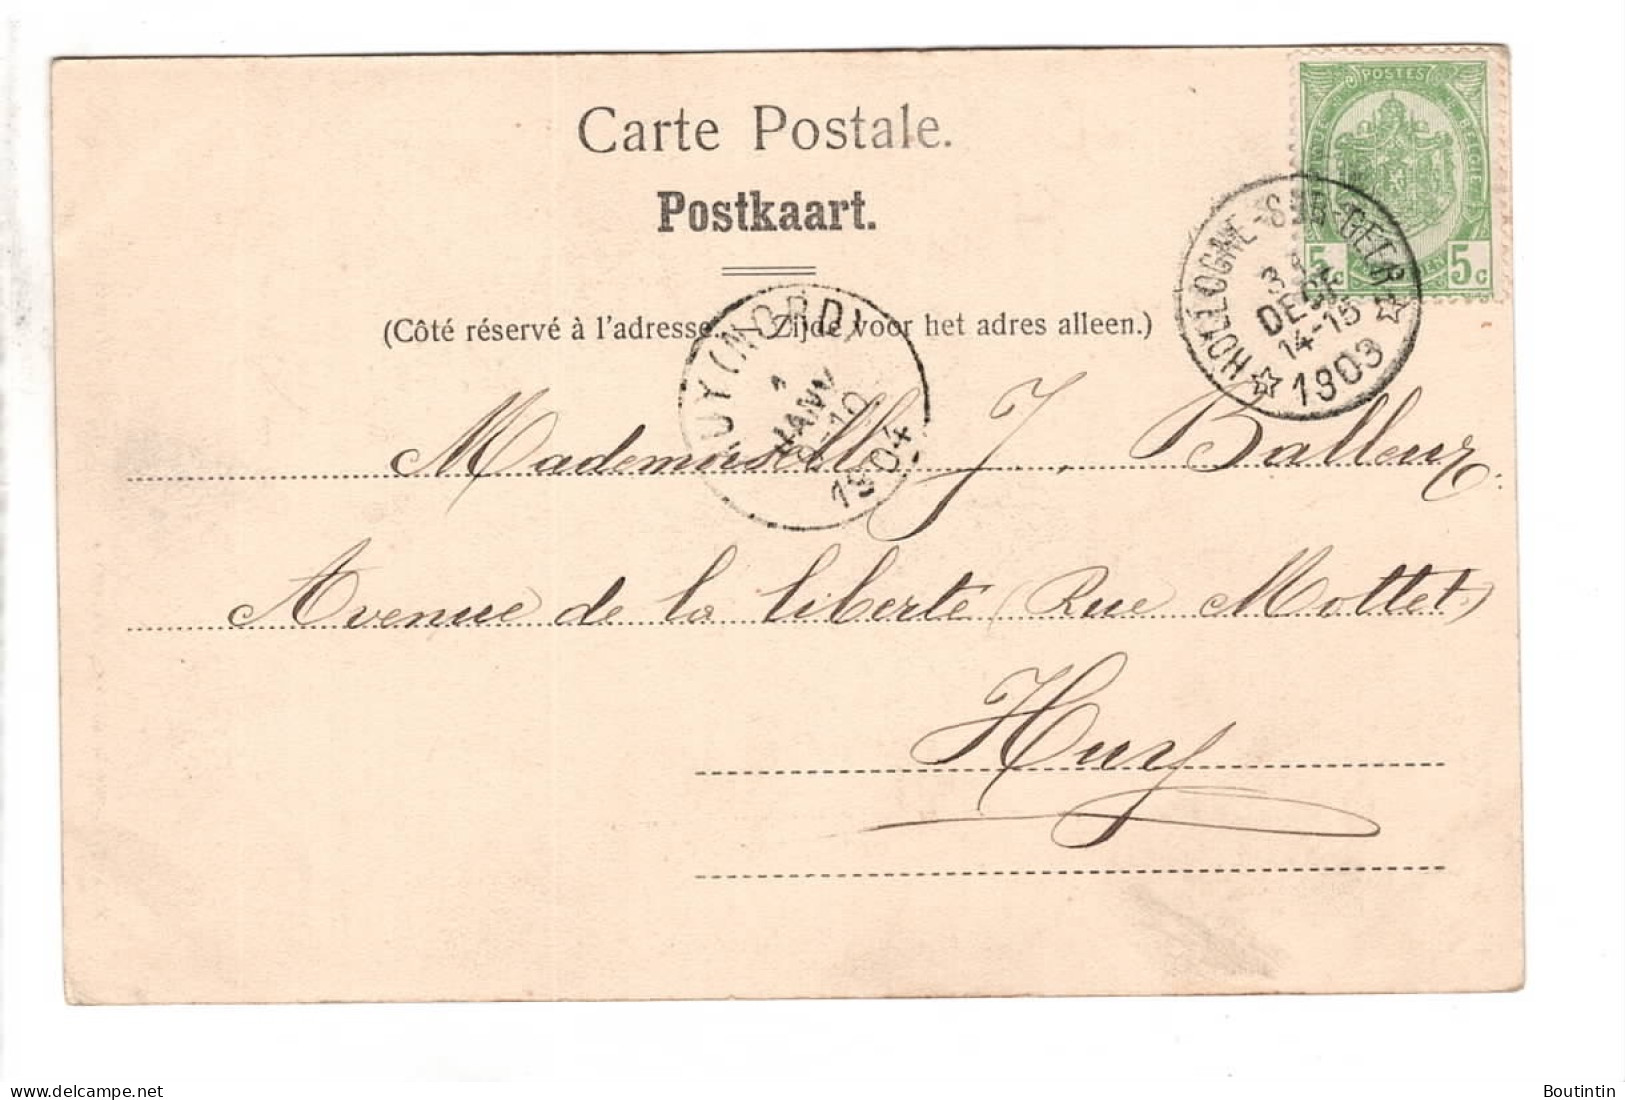 Carte Postale.
Postkaart.
POSTES
BELGIE
5c 5c
HOLLOGNE-SUR-GEER
DECE
14-15
1903
(Côté réservé à l'adresse. — Zijde voor het adres alleen.)
HUY (NORD)
1
JANV
1904
Mademoiselle J. Balleux
Avenue de la liberté (Rue Mottet)
Huy
delcampe.net
Boutintin